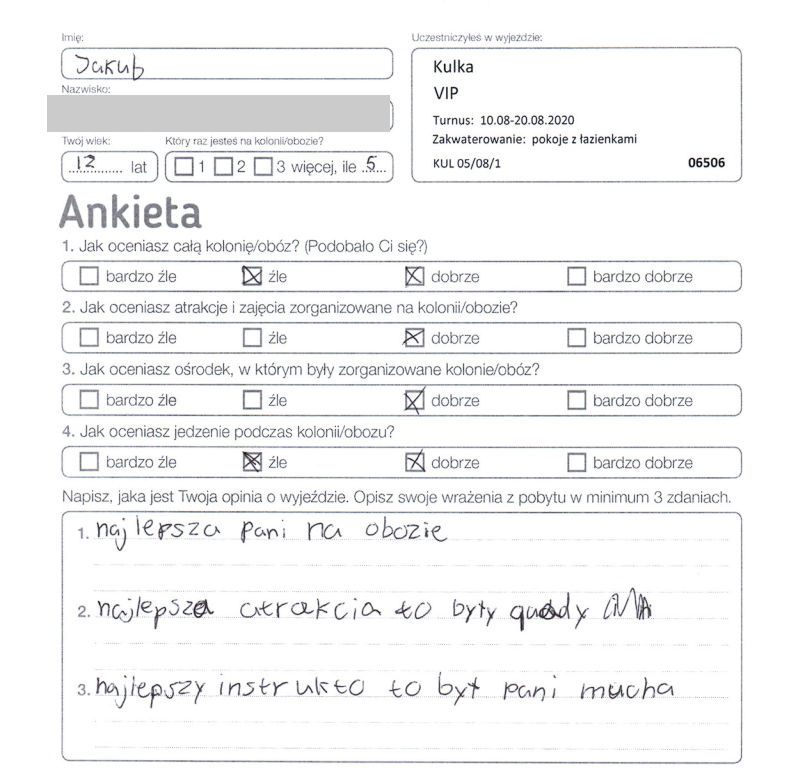 Imię:
Jakub
Uczestniczyłeś w wyjeździe:
Kulka
VIP
Turnus: 10.08-20.08.2020
Zakwaterowanie: pokoje z łazienkami
KUL 05/08/1 06506
Nazwisko:
Twój wiek:
12 lat
Który raz jesteś na kolonii/obozie?
1 2 3 więcej, ile 5
Ankieta
1. Jak oceniasz całą kolonię/obóz? (Podobało Ci się?)
bardzo źle źle dobrze bardzo dobrze
2. Jak oceniasz atrakcje i zajęcia zorganizowane na kolonii/obozie?
bardzo źle źle dobrze bardzo dobrze
3. Jak oceniasz ośrodek, w którym były zorganizowane kolonie/obóz?
bardzo źle źle dobrze bardzo dobrze
4. Jak oceniasz jedzenie podczas kolonii/obozu?
bardzo źle źle dobrze bardzo dobrze
Napisz, jaka jest Twoja opinia o wyjeździe. Opisz swoje wrażenia z pobytu w minimum 3 zdaniach.
1. najlepsza pani na obozie
2. najlepsza atrakcia to były quady
3. najlepszy instrukto to był pani mucha